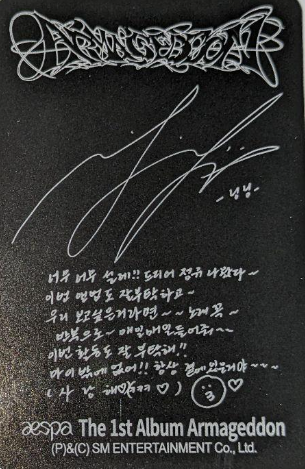 ARMAGEDDON
-닝닝-
너무 너무 설레!! 드디어 정규 나왔다~
이번 앨범도 잘 부탁하고~
우리 보고싶을거라면 ~~ 노래 꼭
반복으로~ 매일매일 들어줘~~
이번 활동도 잘 부탁해!!
마이밖에 없어!! 항상 곁에 있어야~~~
(사랑해♡ ㅋㅋ ♡)
aespa The 1st Album Armageddon
(P)&(C) SM ENTERTAINMENT Co., Ltd.